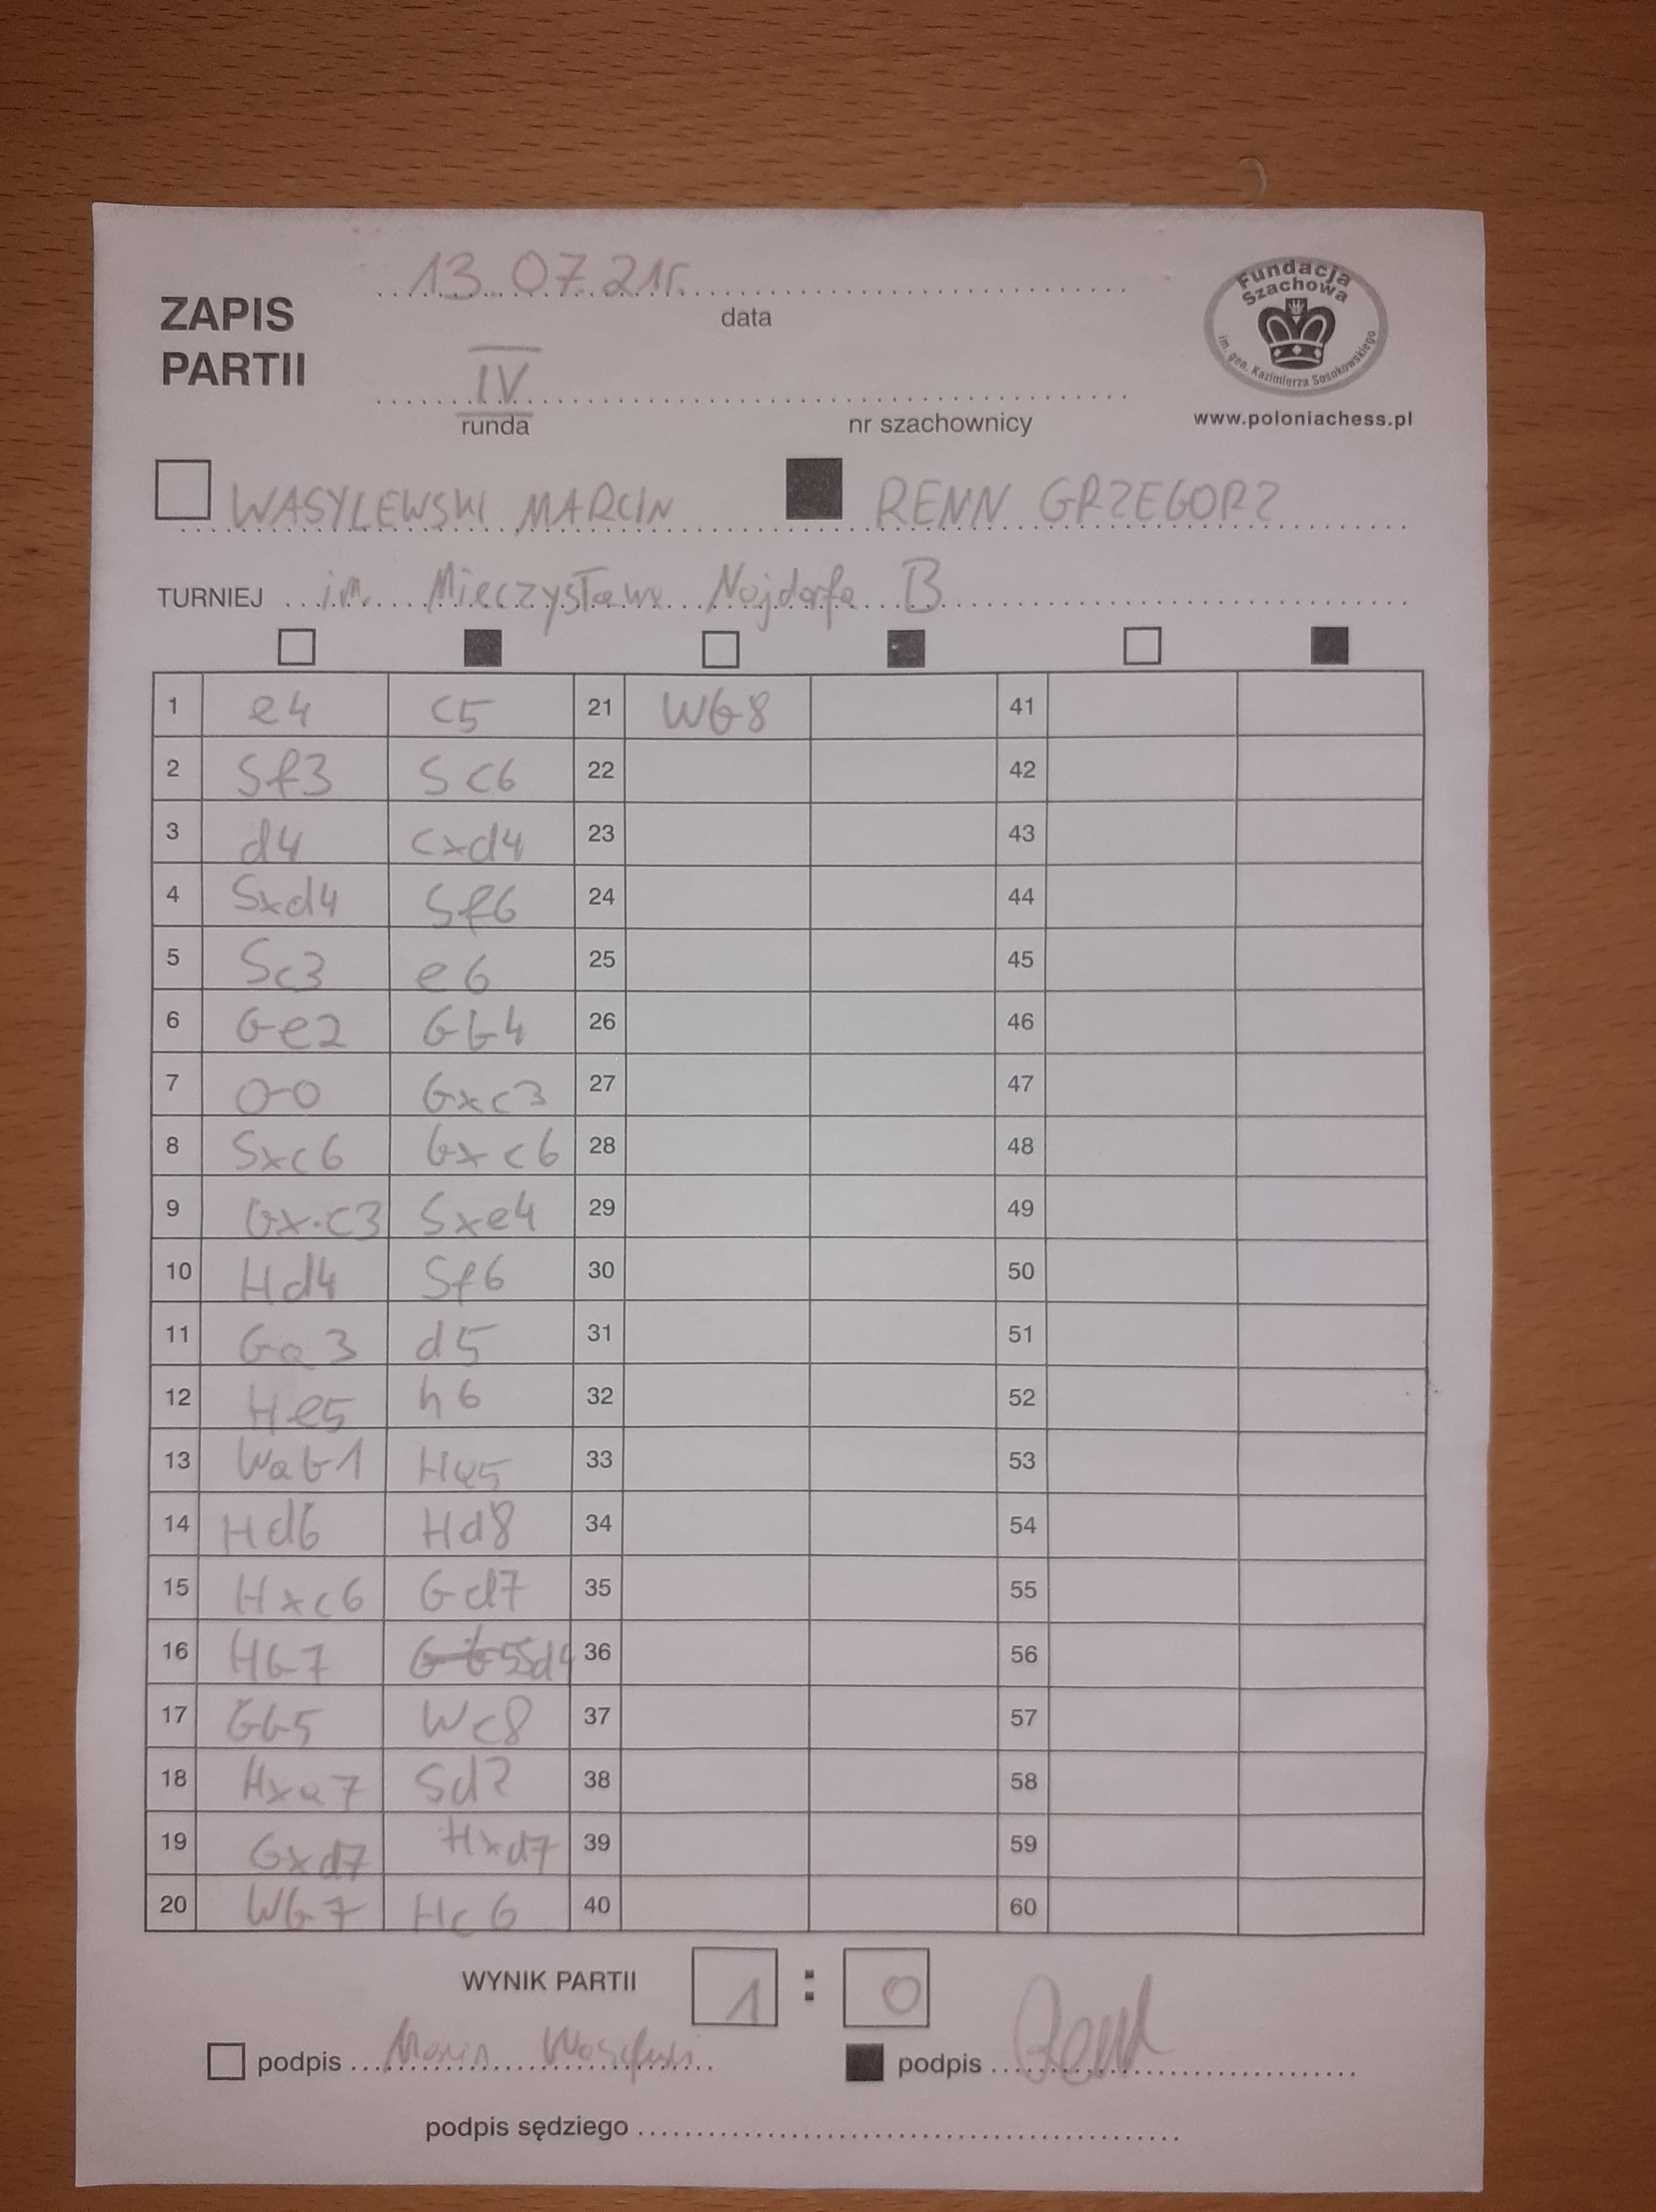 ZAPIS
PARTII
13.07.21r.
data
IV
runda
nr szachownicy
Fundacja
Szachowa
im. gen. Kazimierza Sosnkowskiego
www.poloniachess.pl
WASYLEWSKI MARCIN RENN GRZEGORZ
TURNIEJ im. Mieczysława Najdorfa B
1 e4 c5 21 Wb8 41
2 Sf3 Sc6 22 42
3 d4 cxd4 23 43
4 Sxd4 Sf6 24 44
5 Sc3 e6 25 45
6 Ge2 Gb4 26 46
7 0-0 Gxc3 27 47
8 Sxc6 bxc6 28 48
9 bxc3 Sxe4 29 49
10 Hd4 Sf6 30 50
11 Ga3 d5 31 51
12 He5 h6 32 52
13 Wab1 Ha5 33 53
14 Hd6 Hd8 34 54
15 Hxc6 Gd7 35 55
16 Hb7 36 56
17 Gb5 Wc8 37 57
18 Hxa7 Sd2 38 58
19 Gxd7 Hxd7 39 59
20 Wb7 Hc6 40 60
WYNIK PARTII 1 : 0
podpis Marcin podpis
podpis sędziego